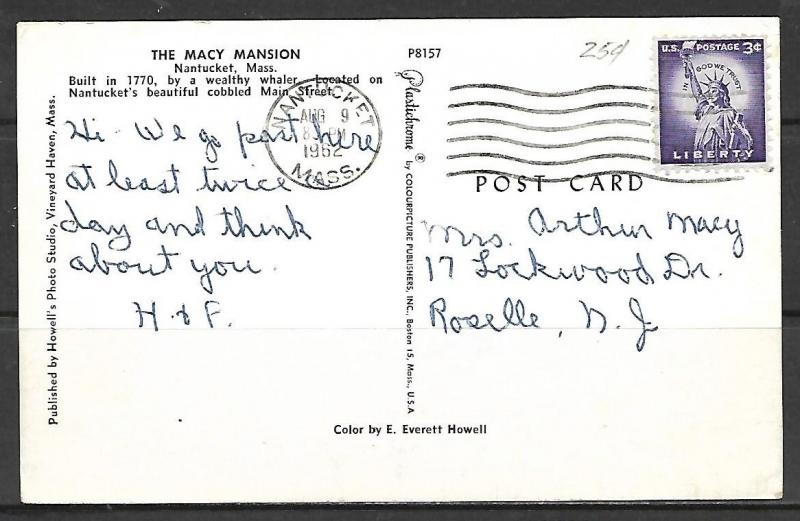 THE MACY MANSION
Nantucket, Mass.
Built in 1770, by a wealthy whaler. Located on
Nantucket's beautiful cobbled Main Street.
Hi - We go past here
at least twice
day and think
about you.
H & F.
Published by Howell's Photo Studio, Vineyard Haven, Mass.
P8157
Plastichrome ® by COLOURPICTURE PUBLISHERS, INC., Boston 15, Mass., U.S.A
NANTUCKET
AUG 9
PM
1962
MASS.
25¢
U.S. POSTAGE 3¢
IN GOD WE TRUST
LIBERTY
POST CARD
Mrs. Arthur Macy
17 Lockwood Dr.
Roselle, N. J
Color by E. Everett Howell